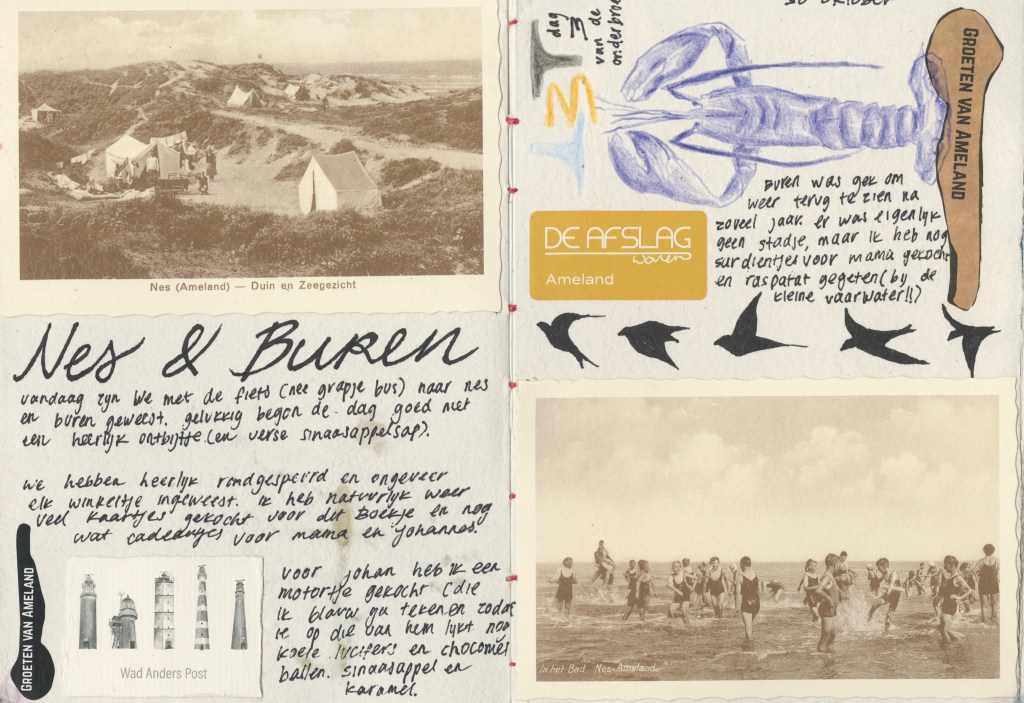 Nes (Ameland) — Duin en Zeegezicht
Nes & Buren
vandaag zijn we met de fiets (nee grapje bus) naar nes
en buren geweest. gelukkig begon de dag goed met
een heerlijk ontbijtje (en verse sinaasappelsap).
we hebben heerlijk rondgespeurd en ongeveer
elk winkeltje ingeweest. ik heb natuurlijk weer
veel kaartjes gekocht voor dit boekje en nog
wat cadeautjes voor mama en johannes.
voor johan heb ik een
motortje gekocht (die
ik blauw ga tekenen zodat
ie op die van hem lijkt nog
lucifers en chocomel
ballen. sinaasappel en
karamel.
GROETEN VAN AMELAND
Wad Anders Post
dag
3
van de
30 oktober
GROETEN VAN AMELAND
DE AFSLAG
wonen
Ameland
Buren was gek om
weer terug te zien na
zoveel jaar. er was eigenlijk
geen stadje, maar ik heb nog
sardientjes voor mama gekocht
en raspatat gegeten (bij de
kleine vaarwater!!)
In het Bad Nes-Ameland.